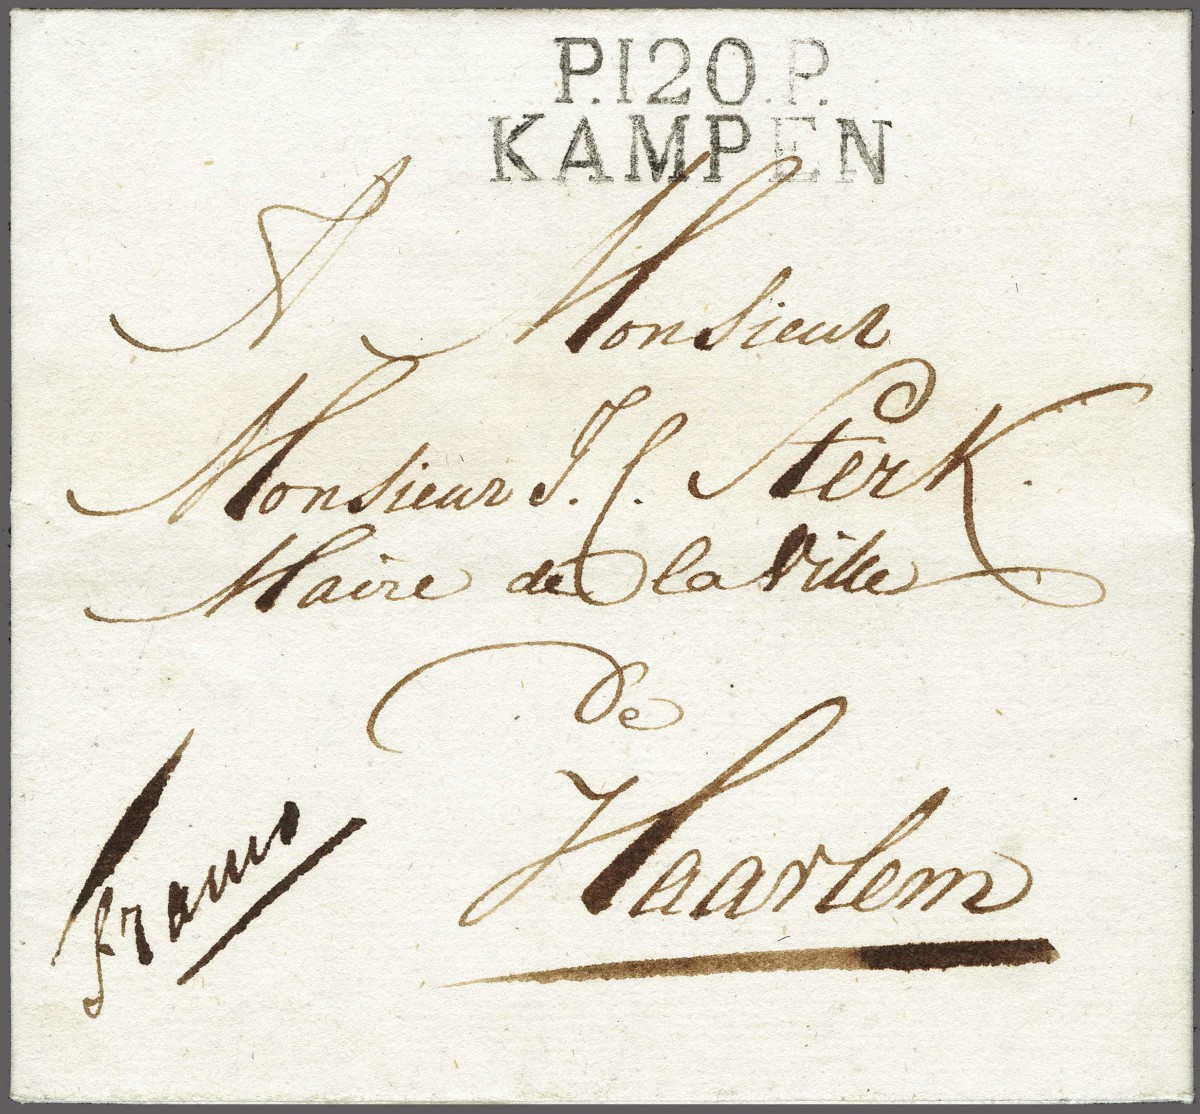 P.120.P.
KAMPEN
A Monsieur
Monsieur J. C. Sterk.
Maire de la Ville
De
Haarlem
franco